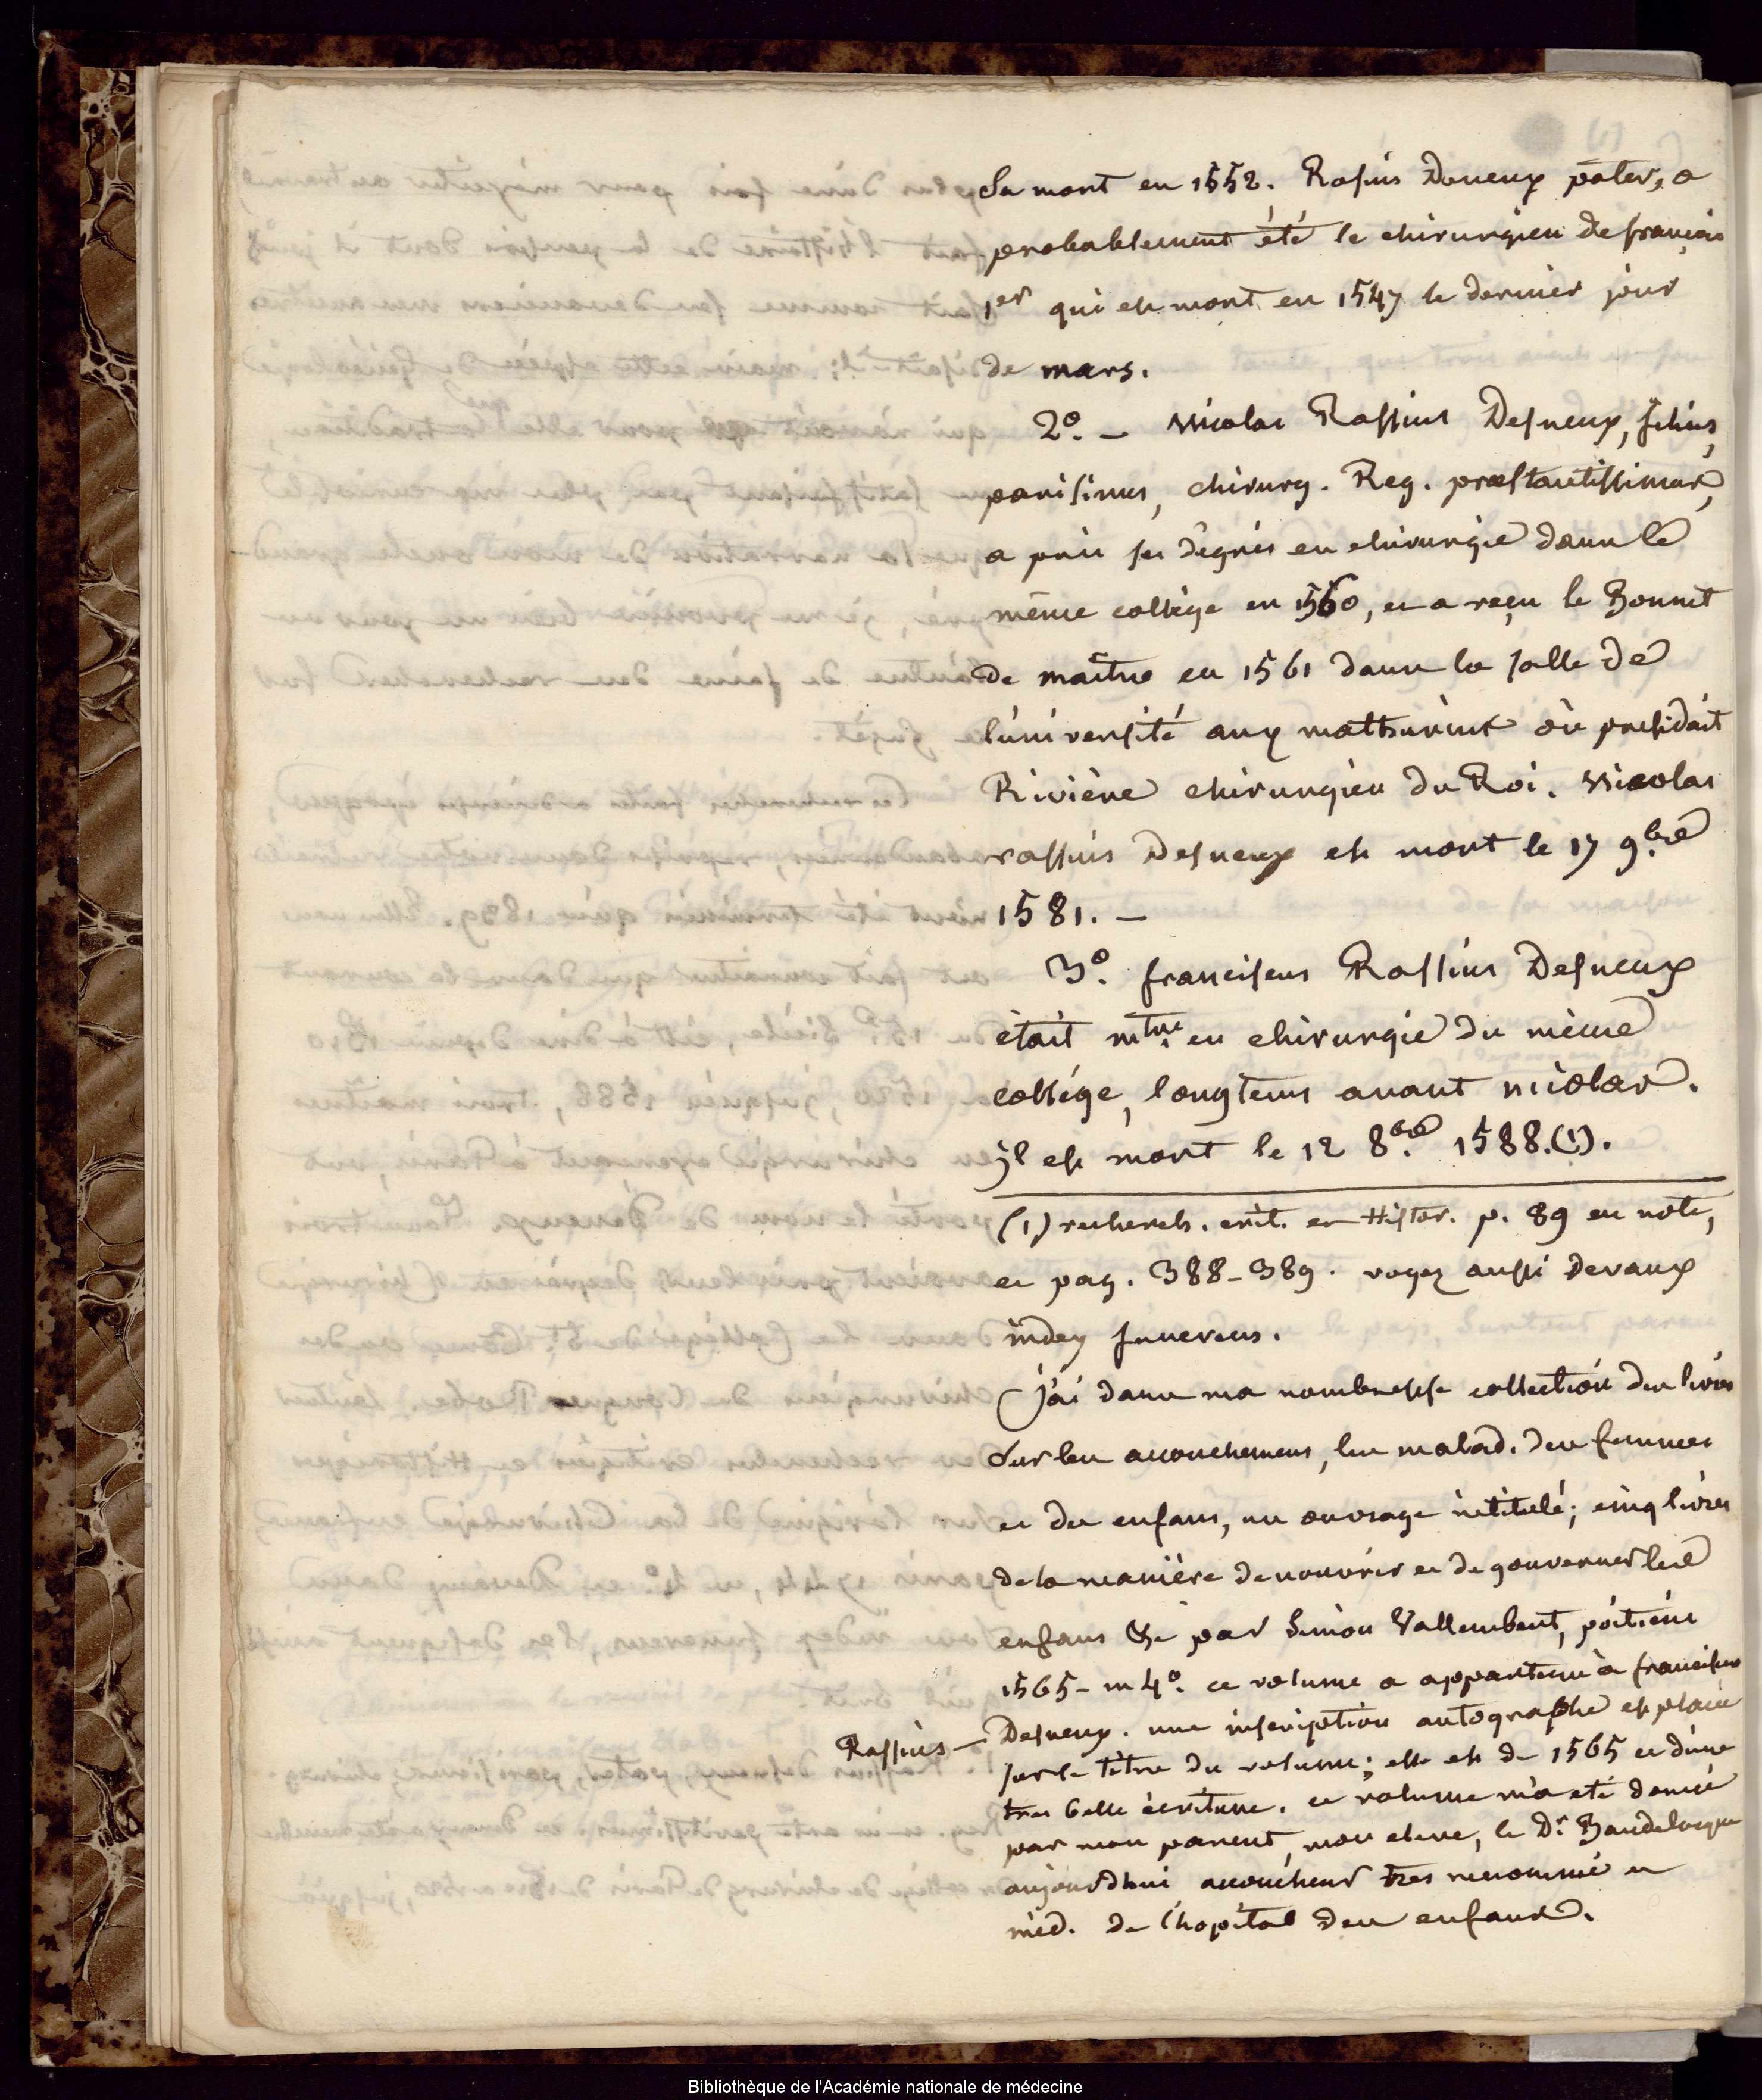 Sa mort en 1552. Rasius Deneux pater, a
probablement été le chirurgien de françois
1er qui est mort en 1547 le dernier jour
de mars.
2º. — Nicolas Rassius Desneux, filius,
parisinus, chirurg. Reg. præstantissimus,
a pris ses dègrés en chirurgie dans le
même collège en 1560, et a reçu le Bonnet
de maître en 1561 dans la salle de
l'université aux mathurins où presidait
Rivière chirurgien du Roi. Nicolas
rassius Desneux est mort le 17 9bre
1581. —
3º. franciscus Rassius Desneux
était mtre en chirurgie du même
collége, longtems avant nicolas.
jl est mort le 12 8bre 1588.(1).
(1) recherch. crit. et Histor. p. 89 en note,
et pag. 388-389. voyez aussi devaux
index funereus.
j'ai dans ma nombreuse collection des livres
Sur les accouchemens, les malad. des femmes
et des enfans, un ouvrage intitulé; cinq livres
de la manière de nourrir et de gouverner les
enfans &c par Simon Vallembert, poitiers
1565 - in 4º. ce volume a appartenu à franciscus
Rassius — Desneux. une inscription autographe est placée
sur le titre du volume; elle est de 1565 et d'une
tres belle écriture. ce volume m'a eté donné
par mon parent, mon eleve, le Dr. Baudelocque
aujourd'hui accoucheur tres renommé et
méd. de l'hopital des enfans.
Bibliothèque de l'Académie nationale de médecine